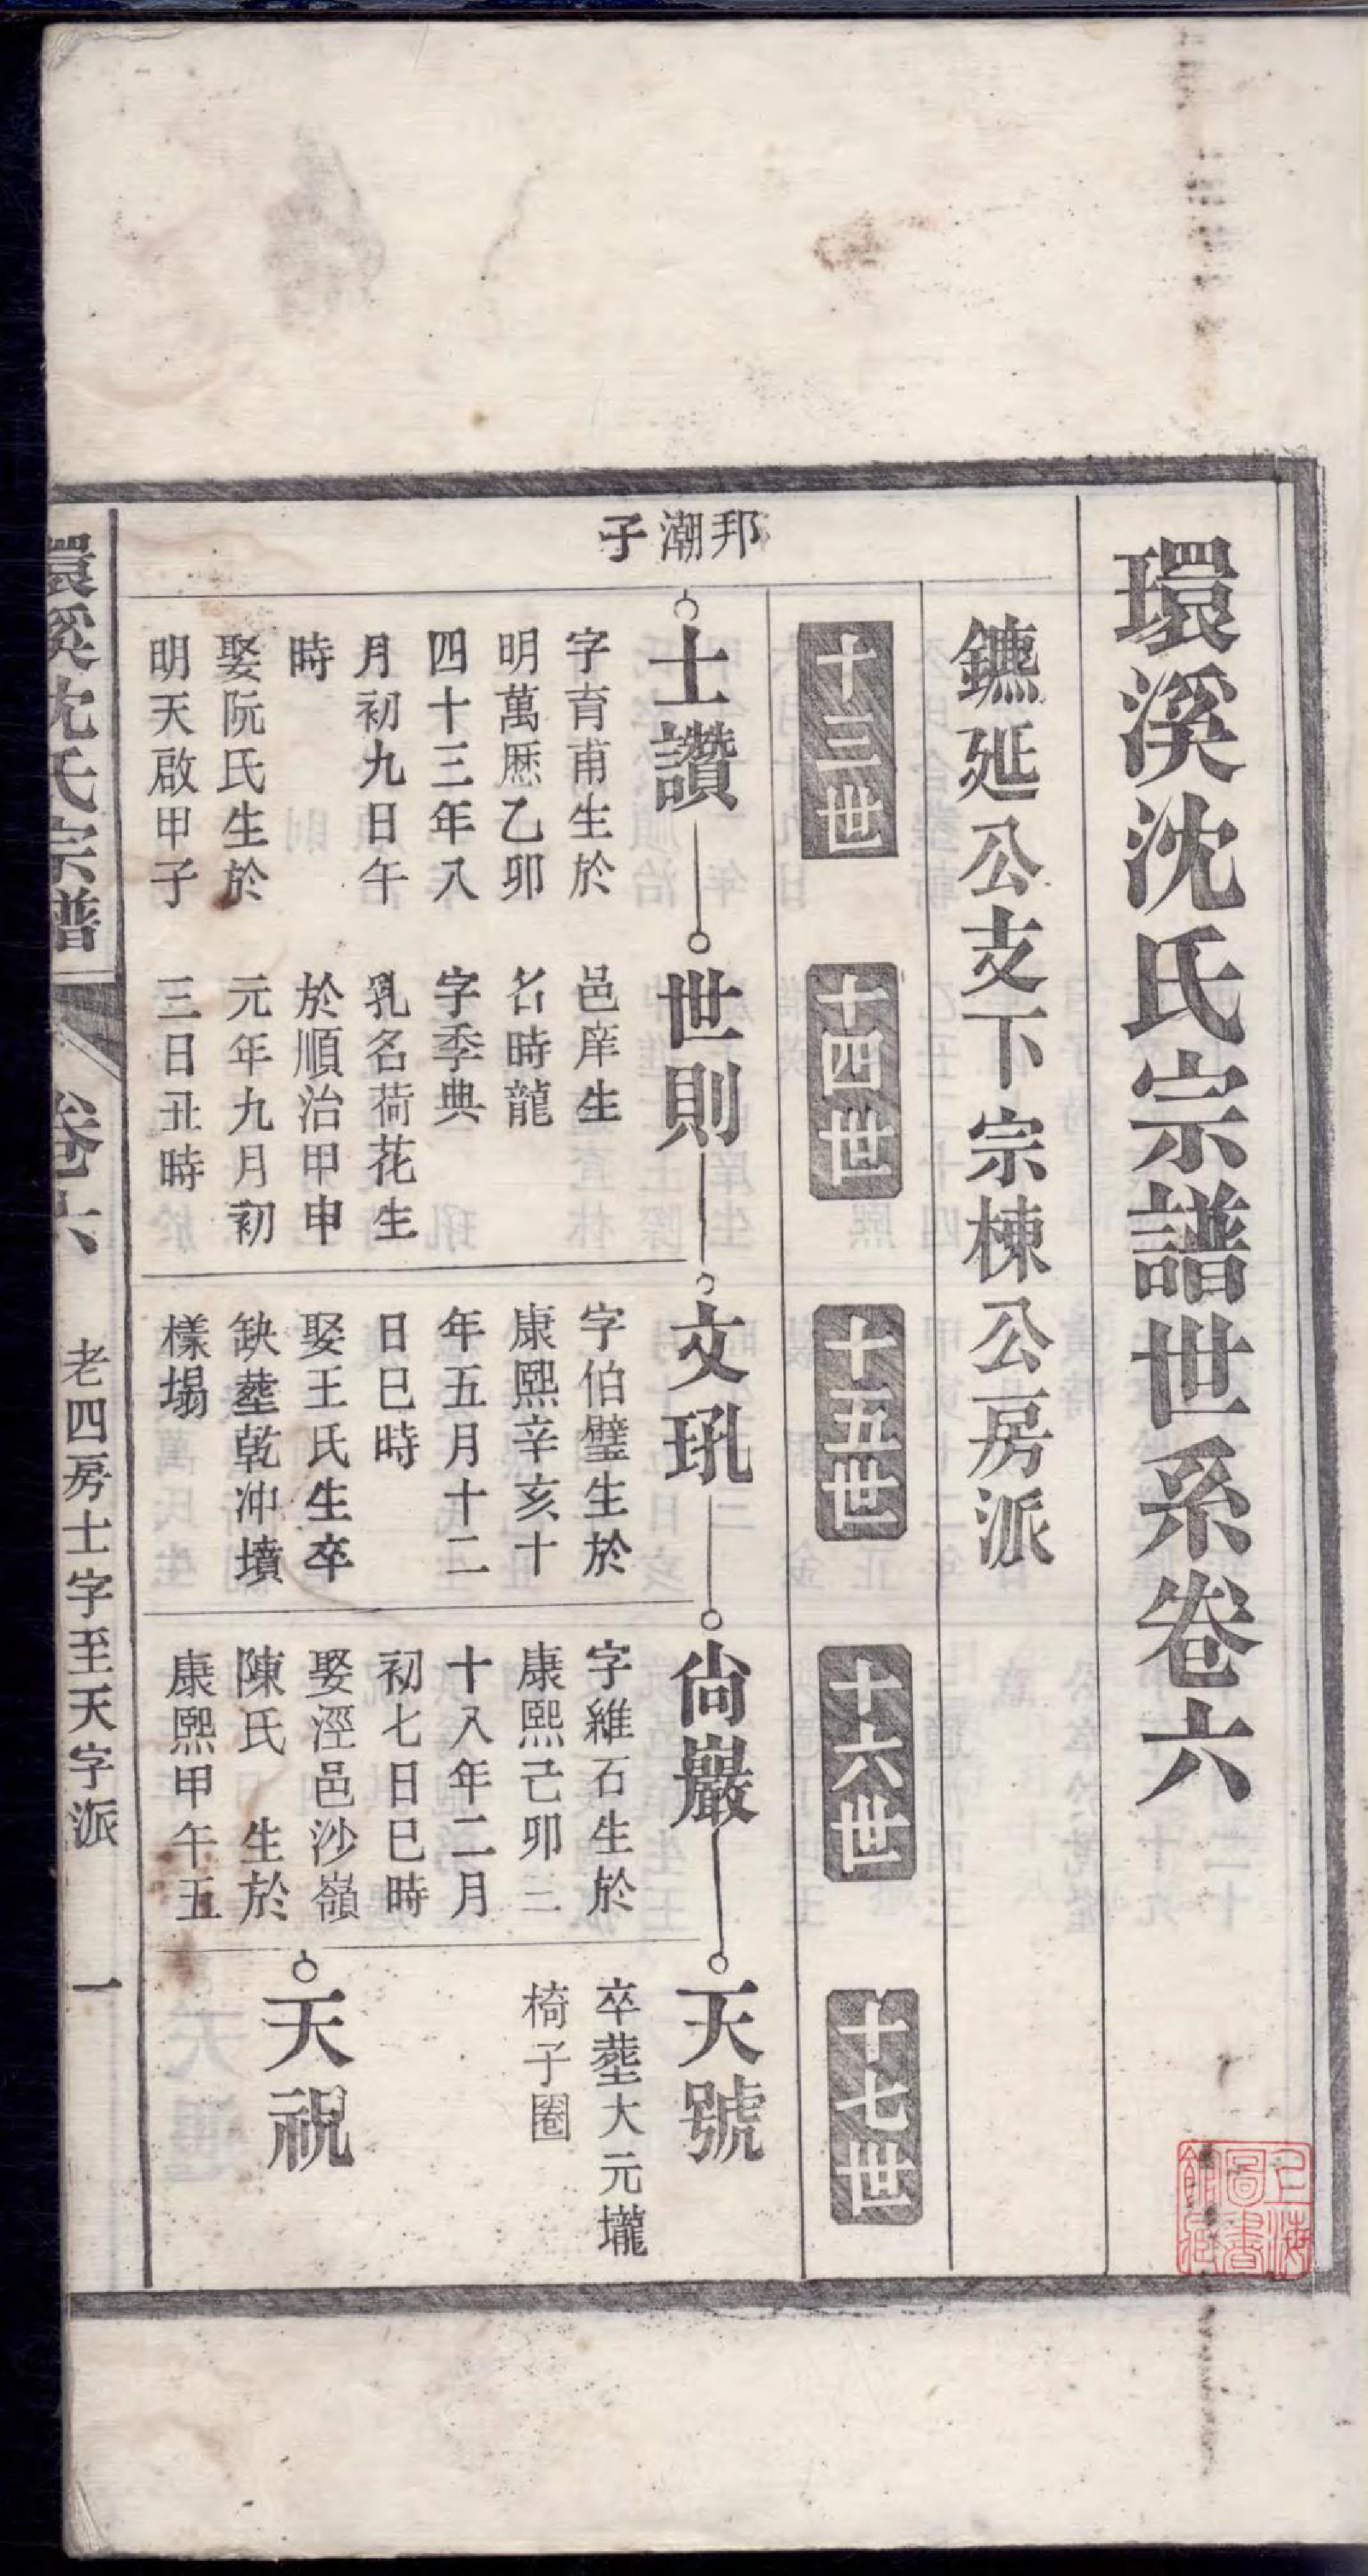 環溪沈氏宗譜世系卷六
鑣延公支下宗棟公房派
十三世
十四世
十五世
十六世
十七世
邦潮子
士讚
字育甫生於
明萬厯乙卯
四十三年八
月初九日午
時
娶阮氏生於
明天啟甲子
世則
邑庠生
名時龍
字季典
乳名荷花生
於順治甲申
元年九月初
三日丑時
文玌
字伯璧生於
康熙辛亥十
年五月十二
日巳時
娶王氏生卒
缺塟乾冲墳
樣塌
尙巖
字維石生於
康熙己卯三
十八年二月
初七日巳時
娶涇邑沙嶺
陳氏 生於
康熙甲午五
天號
卒塟大元壠
椅子圈
天祝
環溪沈氏宗譜
卷六
老四房士字至天字派
一
上海圖書館藏